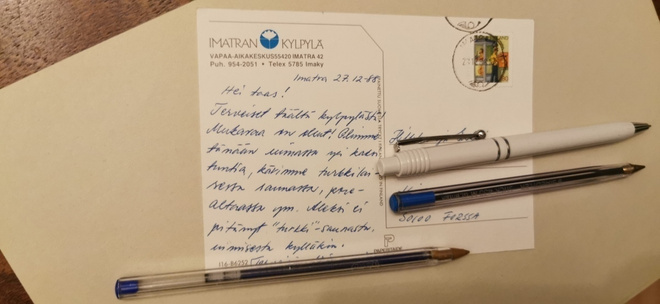 IMATRAN KYLPYLÄ
VAPAA-AIKAKESKUS 55420 IMATRA 42
Puh. 954-2051 • Telex 5785 Imaky
Imatra 27.12-88
Hei taas!
Terveiset täältä kylpylästä!
Mukavaa on ollut! Olimme
tänään uimassa yli kaksi
tuntia, kävimme turkkilai-
sessa saunassa, pore-
altaassa ym. Aleksi ei
pitänyt "turkki"-saunasta,
uimisesta kylläkin.
116-86252
PAPERSTADE
FORSSA